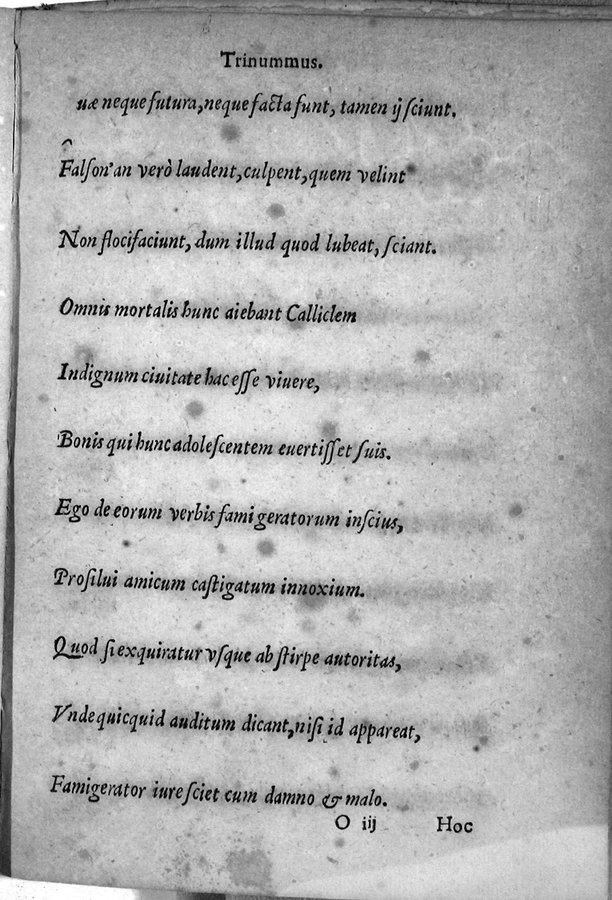 Trinummus.
uæ neque futura, neque facta sunt, tamen ij sciunt.
Falson'an verò laudent, culpent, quem velint
Non flocifaciunt, dum illud quod lubeat, sciant.
Omnis mortalis hunc aiebant Calliclem
Indignum ciuitate hac esse viuere,
Bonis qui hunc adolescentem euertisset suis.
Ego de eorum verbis famigeratorum inscius,
Prosilui amicum castigatum innoxium.
Quod si exquiratur vsque ab stirpe autoritas,
Vnde quicquid auditum dicant, nisi id appareat,
Famigerator iure sciet cum damno & malo.
O iij Hoc